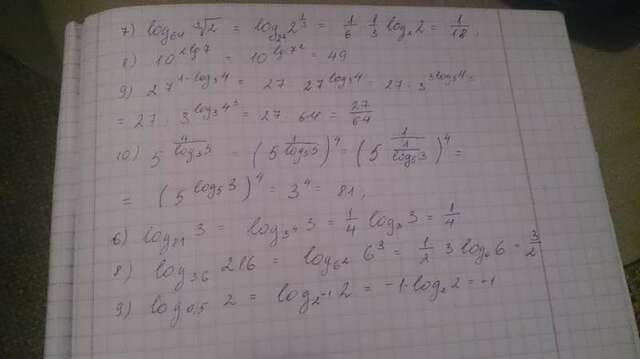 7) log₆₄ ∛2 = log₂₆ 2^(1/3) = 1/6 · 1/3 log₂ 2 = 1/18,
8) 10^(2lg7) = 10^(lg7²) = 49
9) 27^(1-log₃4) = 27 : 27^(log₃4) = 27 : 3^(3log₃4) =
= 27 : 3^(log₃4³) = 27 : 64 = 27/64
10) 5^(4/log₃5) = (5^(1/log₃5))⁴ = (5^(1/(1/log₅3)))⁴ =
= (5^(log₅3))⁴ = 3⁴ = 81,
6) log₈₁ 3 = log₃⁴ 3 = 1/4 log₃ 3 = 1/4
8) log₃₆ 216 = log₆² 6³ = 1/2 · 3 log₆ 6 = 3/2
9) log₀,₅ 2 = log₂⁻¹ 2 = -1·log₂ 2 = -1